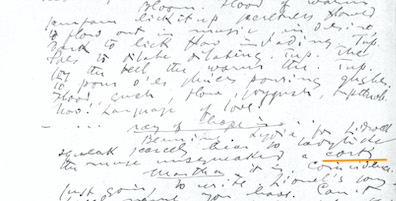 Bloom. Flood of warm
jamjam lickitup secretness flowed
to flow out in music in desire,
dark to lick flow invading. Tup.
Pores to dilate dilating. Tup. The
joy the feel the warm the. Tup.
To pour o'er sluices pouring gushes.
Flood, gush, flow, joygush, tupthrob.
Now! Language of love.
— ... ray of hope is ...
Beaming. Lydia for Lidwell
squeak scarcely hear so ladylike
the muse unsqueaked a cork.
Martha it is coincidence.
Just going to write. Lionel's song
name you have. Can't